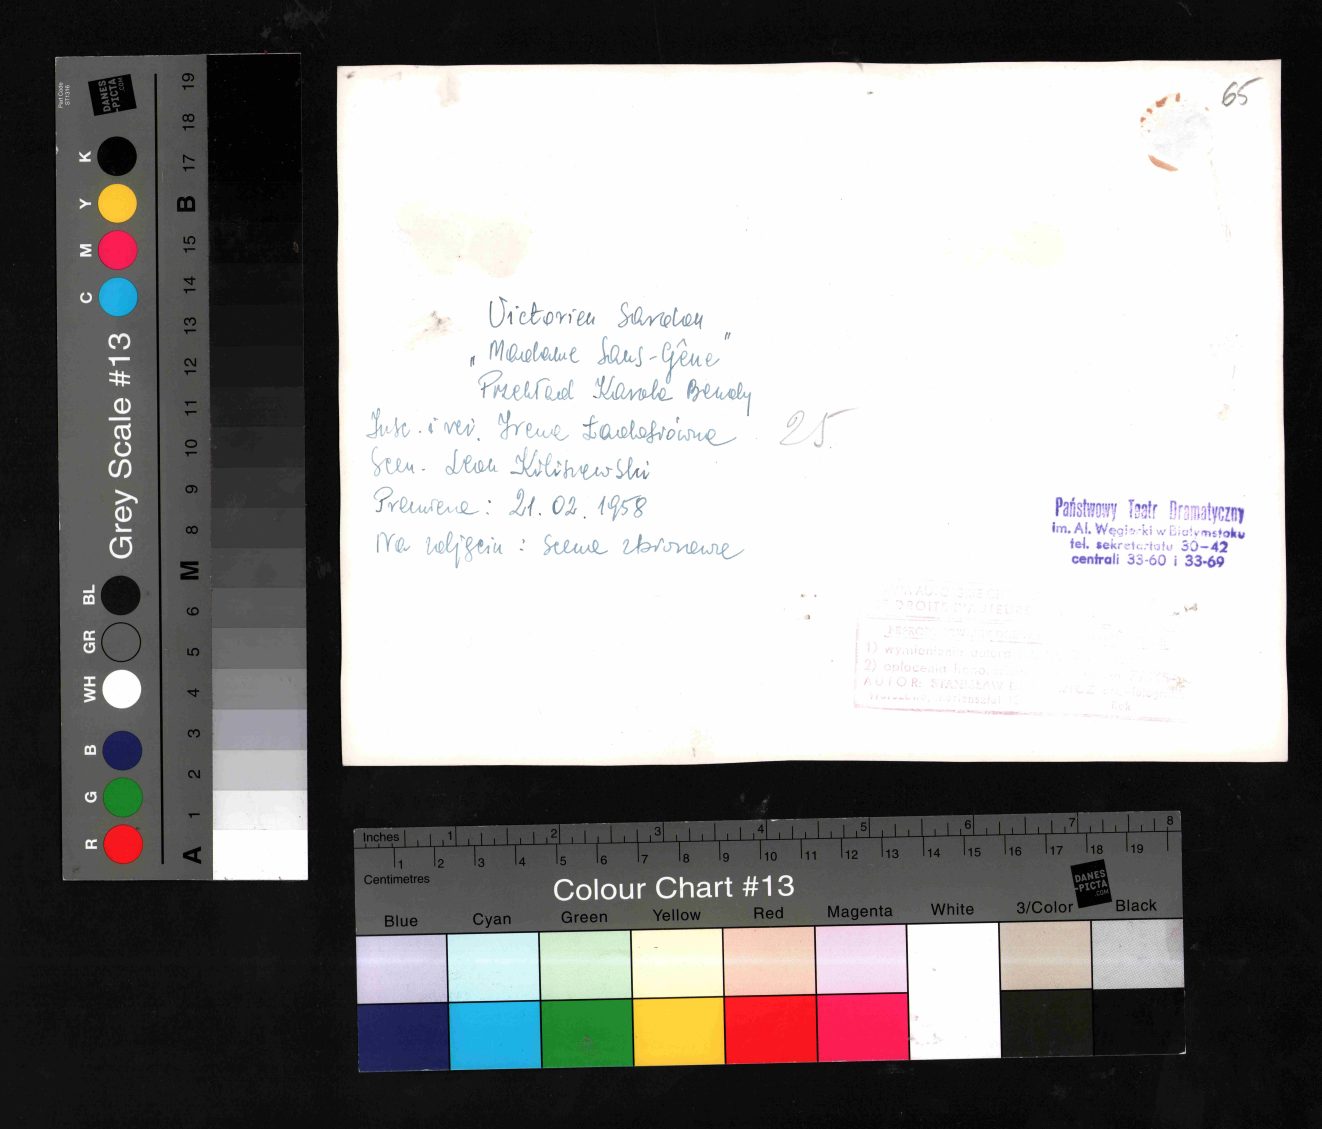 65
Victorien Sardou
„Madame Sans-Gêne"
Przekład Karola Bendy
Insc. i reż. Irena Ładosiówna
25.
Scen. Leon Kiliszewski
Premiera: 21.02.1958
Na zdjęciu: scena zbiorowa
Państwowy Teatr Dramatyczny
im. Al. Węgierki w Białymstoku
tel. sekretariatu 30-42
centrali 33-60 i 33-69
DROITS D'AUTEURS
1) wymienienia autora
2) opłacenia
AUTOR: STANISŁAW
Part Code
ST1316
DANES
-PICTA
.COM
Grey Scale #13
R G B WH GR BL C M Y K
A 1 2 3 4 5 6 M 8 9 10 11 12 13 14 15 B 17 18 19
Inches 1 2 3 4 5 6 7 8
Centimetres 1 2 3 4 5 6 7 8 9 10 11 12 13 14 15 16 17 18 19
Colour Chart #13
DANES
-PICTA
.COM
Blue Cyan Green Yellow Red Magenta White 3/Color Black